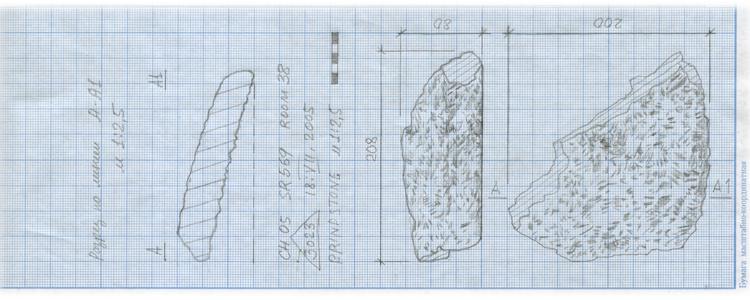 Разрез по линии А-А1
М 1:2,5
А
А1
CH 05 SR 569 ROOM 38
3023 18.VII.2005
GRINDSTONE М 1:2,5
80
208
А
200
А-1
Бумага масштабно-координатная